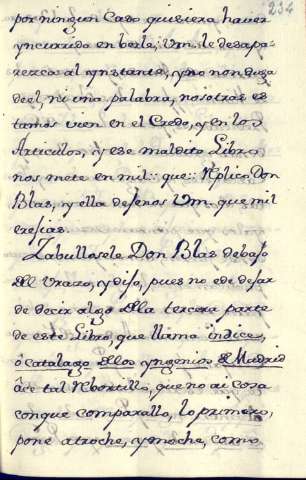 234
por ningun Caso quisiera haver
yncurrido en berle; Vm. le desapa-
rezca al ynstante, y no non diga
de el, ni una palabra, nosotras es
tamos vien en el Credo, y en los
Articulos, y ese maldito Libro,
nos mete en mil:: que:: Rplico Don
Blas, y ella desenos Vm. que mil
eregias.
Zabullosele Don Blas debajo
del brazo, y dijo, pues no e de dejar
de decir algo della tercera parte
de este Libro, que llama indice,
ô catalago dellos yngenios de Madrid
âce tal Rbortillo, que no ai cosa
conque comparallo, lo primero,
pone atroche, y moche, como